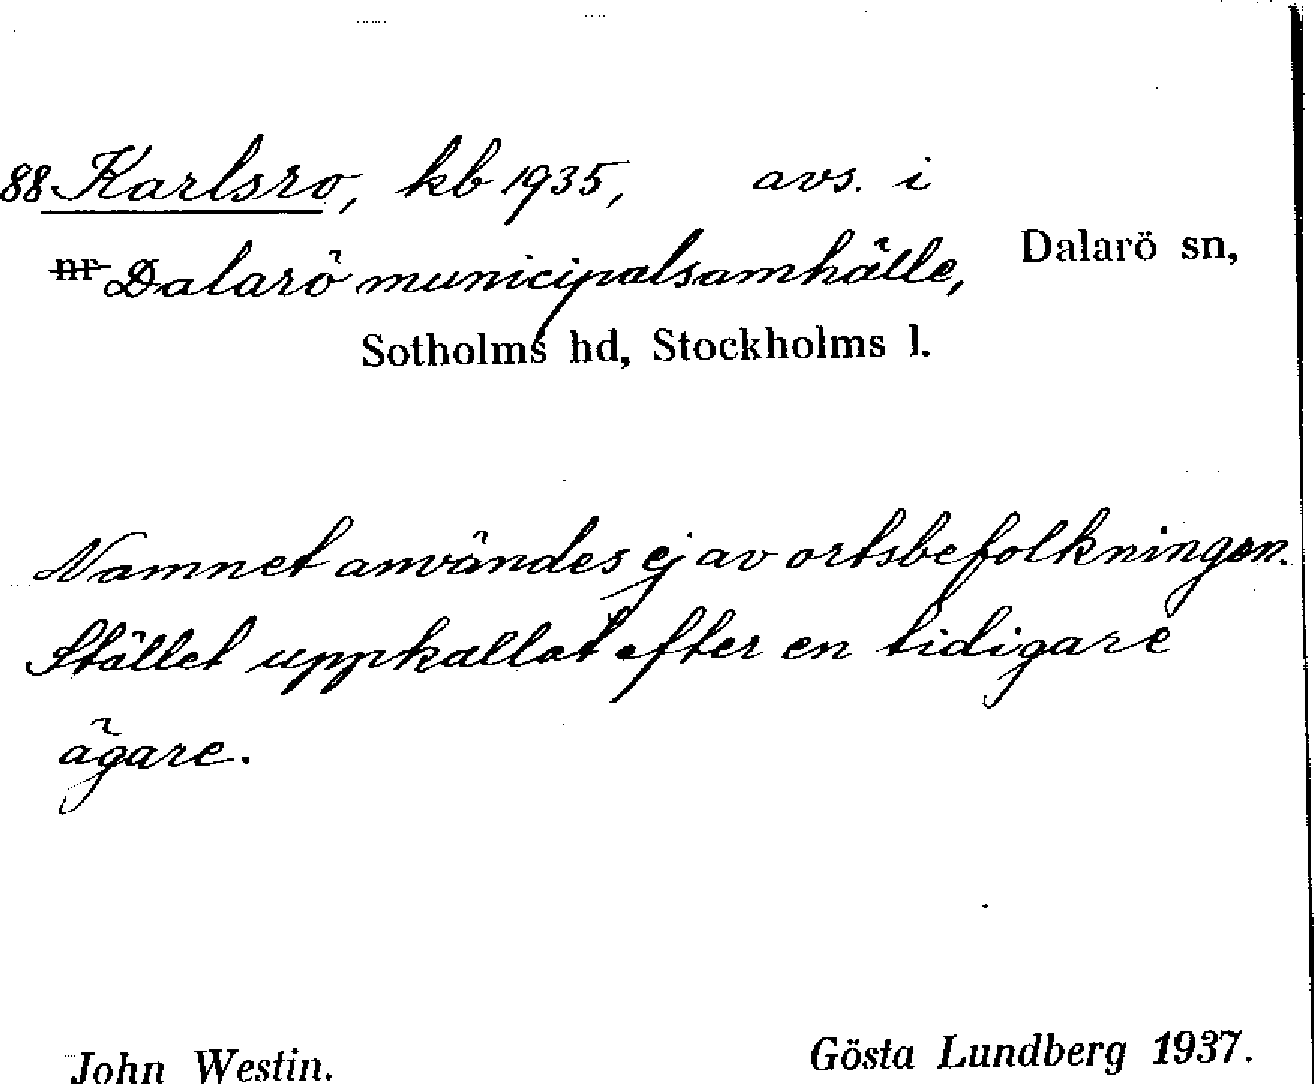 88 Karlsro, kb 1935, avs. i
nr Dalarö municipalsamhälle, Dalarö sn,
Sotholms hd, Stockholms l.
Namnet användes ej av ortsbefolkningen.
Stället uppkallat efter en tidigare
ägare.
John Westin. Gösta Lundberg 1937.